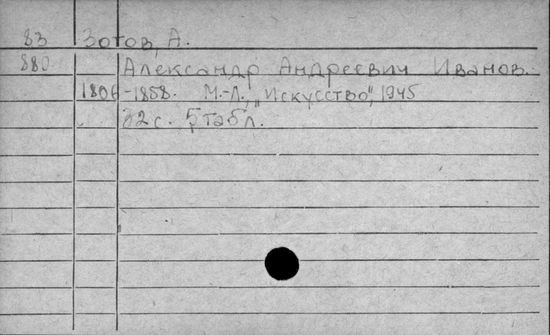 83 Зотов, А.
880 Александр Андреевич Иванов.
1806-1858. М.-Л., „Искусство", 1945
32 с. 5 табл.